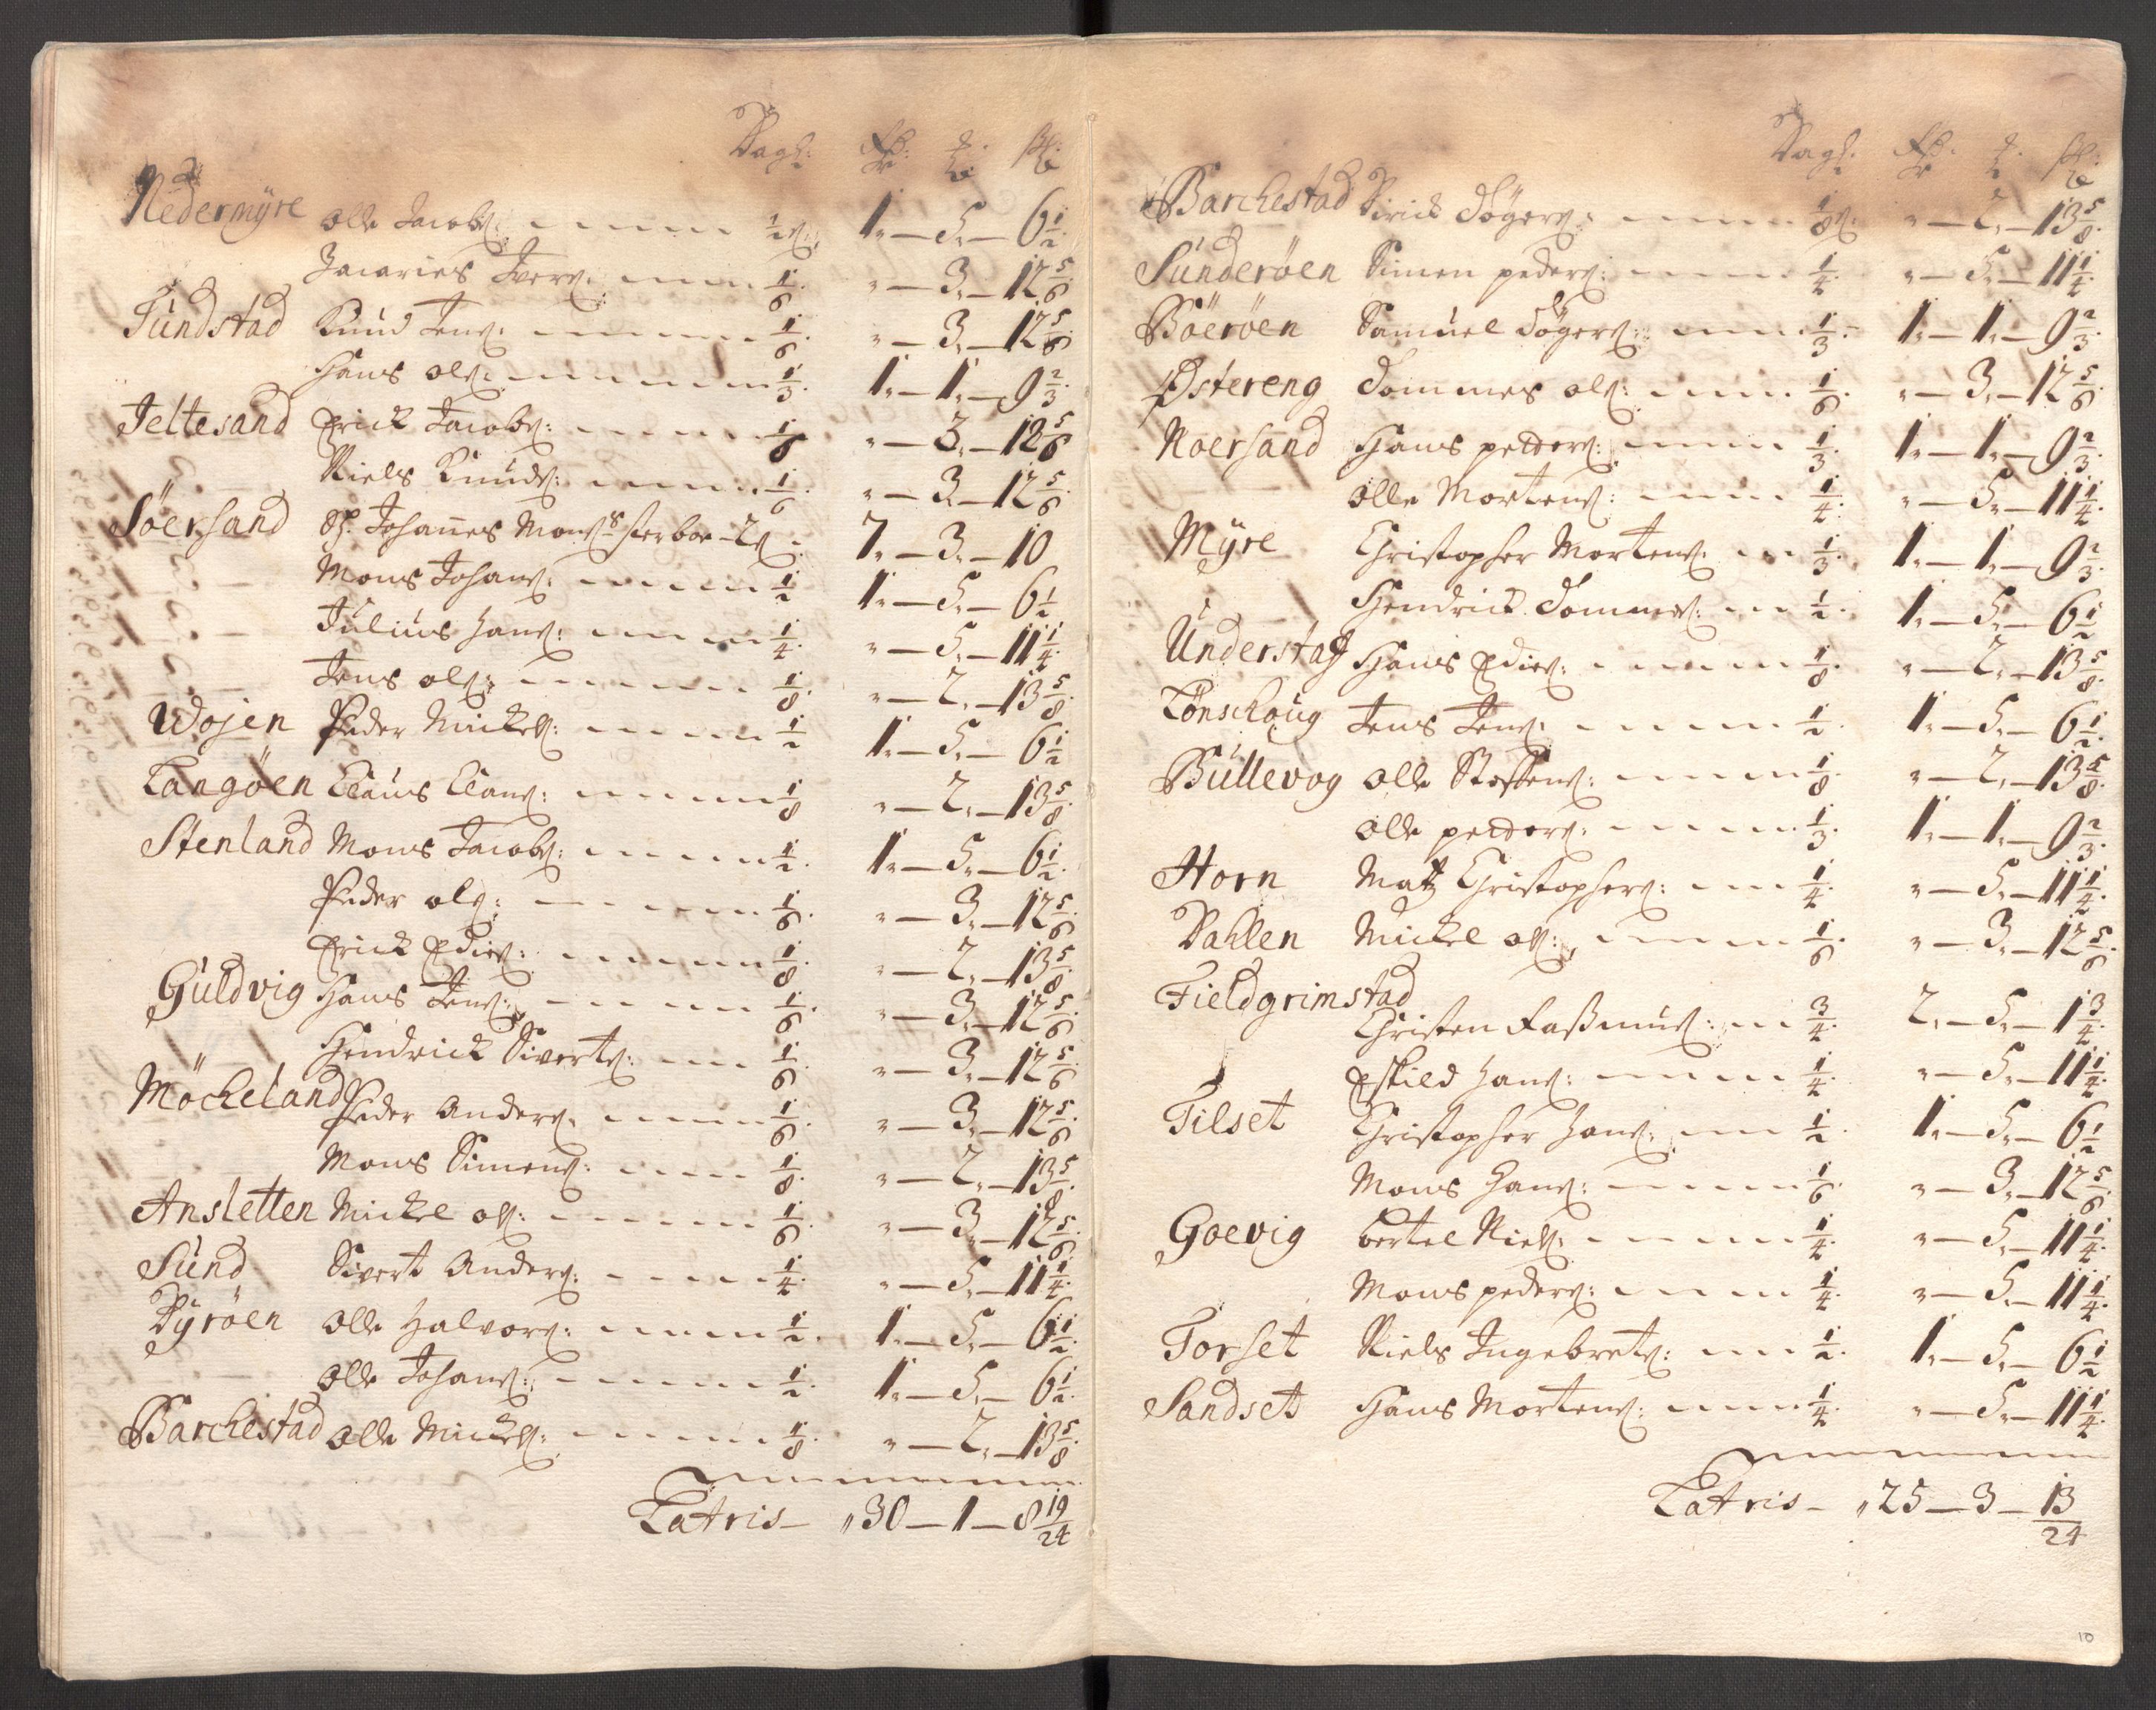 Nedermÿre Olle Jacobs: ½ 1 – 5 – 6 ½
Zacaries Ivers: 1/6 " – 3 – 12 5/6
Tundstad Knud Jens: 1/6 " – 3 – 12 5/6
Hans Ols: 1/3 1 – 1 – 9 2/3
Jeltesand Erick Jacobs: 1/6 " – 3 – 12 5/6
Niels Knuds: 1/6 " – 3 – 12 5/6
Söersand Johannes Mons: sterboe – 2 7 – 3 – 10
Mons Johans: ½ 1 – 5 – 6 ½
Julius Hans: ¼ " – 5 – 11 ¼
Jens Ols: 1/8 " – 2 – 13 5/8
Wojen Peder Mickels: ½ 1 – 5 – 6 ½
Langöen Claus Claus: 1/8 " – 2 – 13 5/8
Stenland Mons Jacobs: ½ 1 – 5 – 6 ½
Peder Ols: 1/6 " – 3 – 12 5/6
Erick Edies: 1/8 " – 2 – 13 5/8
Guldvig Hans Jens: 1/6 " – 3 – 12 5/6
Hendrick Siverts: 1/6 " – 3 – 12 5/6
Möcheland Peder Anders: 1/6 " – 3 – 12 5/6
Mons Simens: 1/8 " – 2 – 13 5/8
Ansletten Mickel Ols: 1/6 " – 3 – 12 5/6
Sund Sivert Anders: ¼ " – 5 – 11 ¼
Dyröen Olle Halvors: ½ 1 – 5 – 6 ½
Olle Johans: ½ 1 – 5 – 6 ½
Barchestad Olle Mickels: 1/8 " – 2 – 13 5/8
Latris – " 30 – 1 – 8 19/24
Barchestad Sirick Dögers: 1/8 " – 2 – 13 5/8
Sunderöen Simen Peders: ¼ " – 5 – 11 ¼
Böeröen Samuel Dögers: 1/3 1 – 1 – 9 2/3
Østereng Tommes Ols: 1/6 " – 3 – 12 5/6
Noersand Hans Petters: 1/3 1 – 1 – 9 2/3
Olle Mortens: ¼ " – 5 – 11 ¼
Mÿre Christopher Mortens: 1/3 1 – 1 – 9 2/3
Hendrick Tommes: ½ 1 – 5 – 6 ½
Understad Hans Edies: 1/8 " – 2 – 13 5/8
Lönschoug Jens Jens: ½ 1 – 5 – 6 ½
Bullevog Olle Steffens: 1/8 " – 2 – 13 5/8
Olle Petters: 1/3 1 – 1 – 9 2/3
Horn Matz Christophers: ¼ " – 5 – 11 ¼
Dahlen Mickel Ols: 1/6 " – 3 – 12 5/6
Fieldgrimstad
Christen Rassmus: ¾ 2 – 5 – 1 ¾
Eskild Hans: ¼ " – 5 – 11 ¼
Tilset Christopher Hans: ½ 1 – 5 – 6 ½
Mons Hans: 1/6 " – 3 – 12 5/6
Goevig Bertel Niels: ¼ " – 5 – 11 ¼
Mons Peders: ¼ " – 5 – 11 ¼
Torset Niels Ingebrets: ½ 1 – 5 – 6 ½
Sandset Hans Mortens: ¼ " – 5 – 11 ¼
Latris – " 25 – 3 – 13/24
10